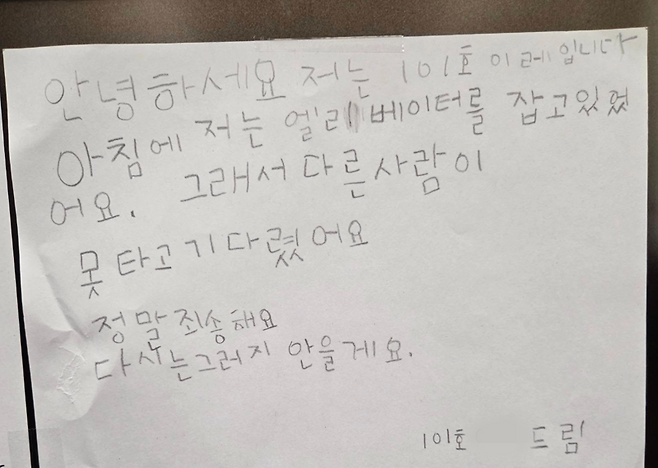 안녕하세요 저는 101호 이레입니다
아침에 저는 엘리베이터를 잡고있었
어요. 그래서 다른사람이
못 타고 기다렸어요
정말죄송해요
다시는그러지 안을게요.
101호 드림